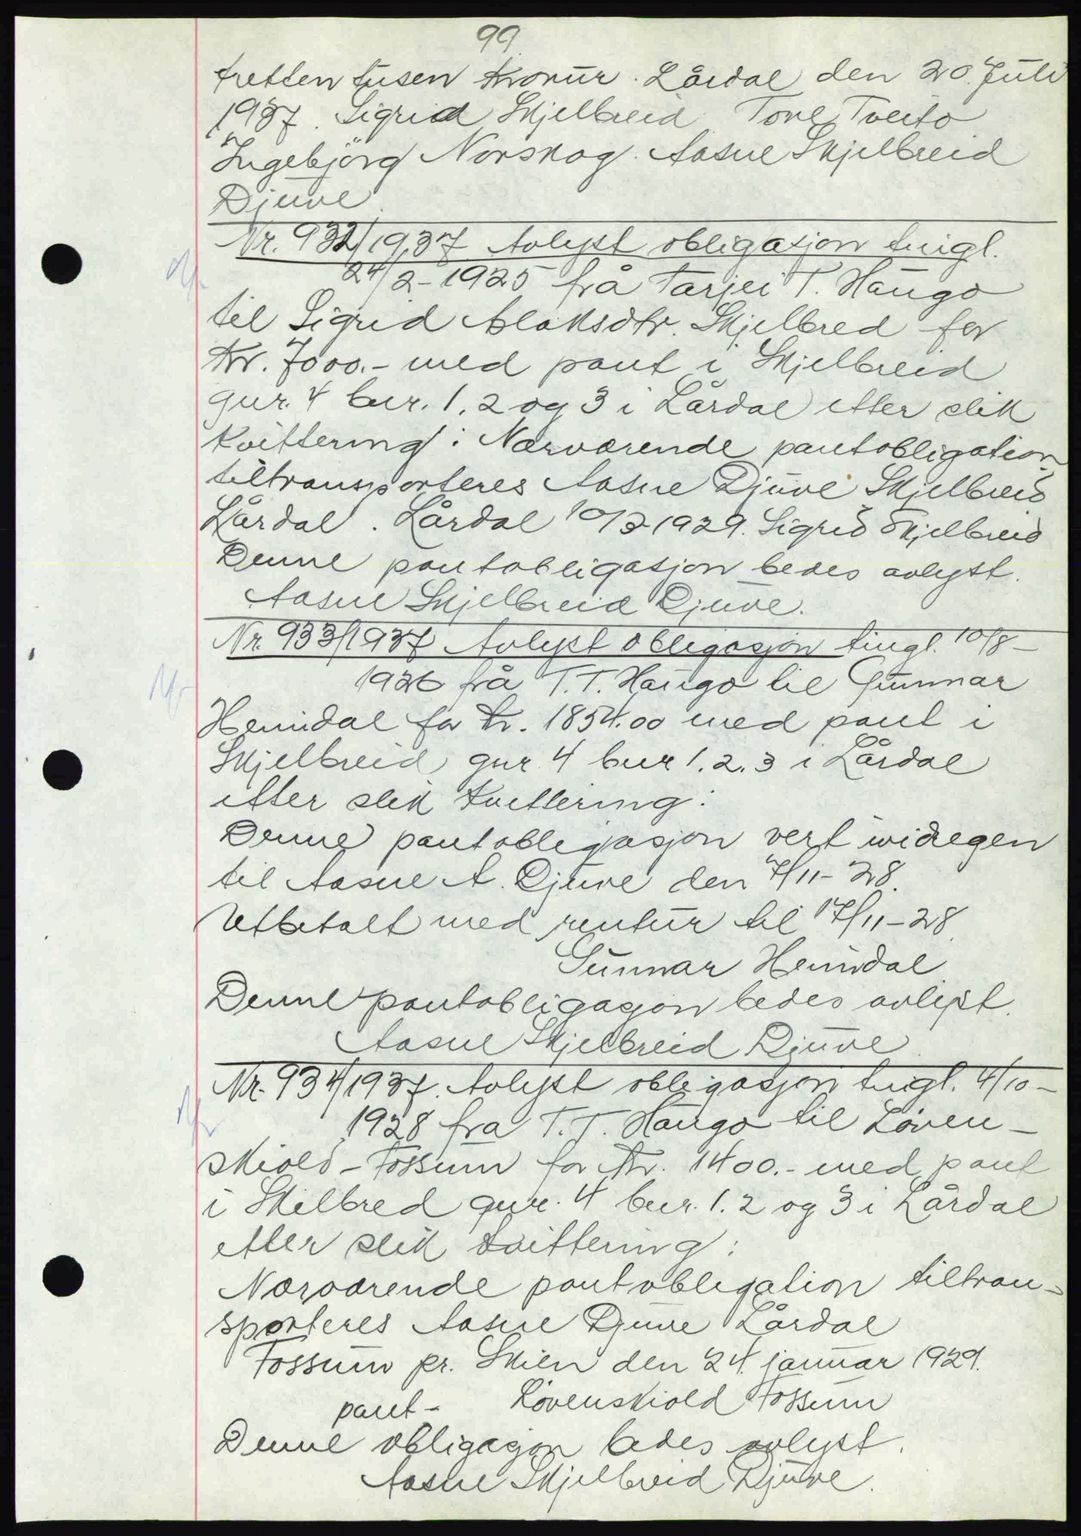 99
tretten tusen kronur. Lårdal den 20. Juli
1937. Sigrid Skjelbreid Tone Tveito
Ingebjörg Norskog. Aasne Skjelbreid
Djuve
Nr. 932/1937 Avlyst obligasjon tingl.
24/2-1925 frå Tarjei T. Haugo
til Sigrid Aslaksdtr. Skjelbred for
kr. 7000.- med pant i Skjelbreid
gnr. 4 bnr. 1, 2 og 3 i Lårdal etter slik
kvittering: Nærværende pantobligation
tiltransporteres Aasne Djuve Skjelbreid
Lårdal. Lårdal 10/3 1929. Sigrid Skjelbreid
Denne pantobligasjon bedes avlyst.
Aasne Skjelbreid Djuve.
Nr. 933/1937 Avlyst obligasjon tingl. 10/8-
1926 frå T. T. Haugo til Gunnar
Heimdal for kr. 1854.00 med pant i
Skjelbreid gnr. 4 bnr 1. 2. 3 i Lårdal
etter slik kvittering:
Denne pantobligjasjon vert
til Aasne A. Djuve den 7/11-28.
Utbetalt med rentur til 17/11-28
Gunnar Heimdal
Denne pantobligasjon bedes avlyst.
Aasne Skjelbreid Djuve
Nr. 934/1937. Avlyst obligasjon tingl. 4/10-
1928 fra T. T. Haugo til Löven-
skiold-Fossum for kr. 1400.- med pant
i Skilbred gnr. 4 bnr. 1. 2 og 3 i Lårdal
etter slik kvittering:
Nærværende pantobligation tiltran-
sporteres Aasne Djuve Lårdal
Fossum pr. Skien den 24. januar 1929.
pant- Lövenskiold Fossum
Denne obligasjon bedes avlyst.
Aasne Skjelbreid Djuve.